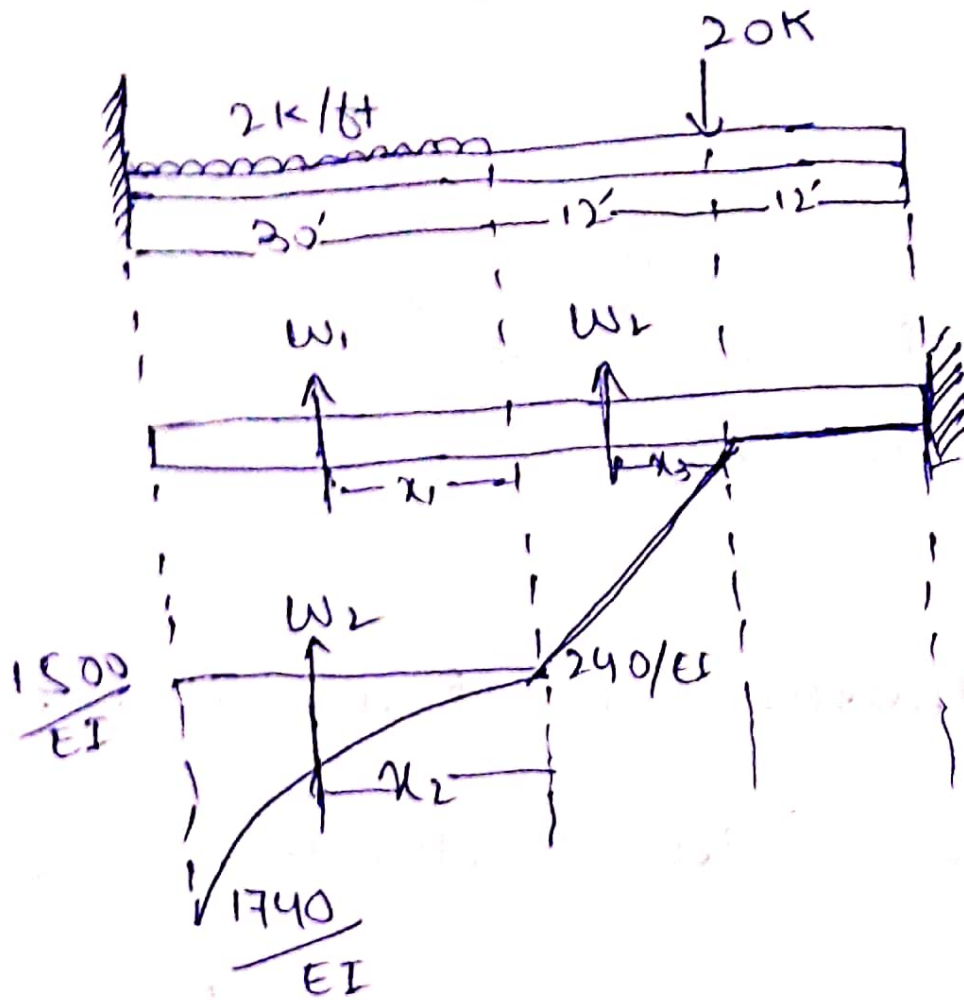 20K
2K/ft
30' 12' 12'
W₁ W₂
x₁ x₃
W₂
1500/EI 240/EI
x₂
1740/EI